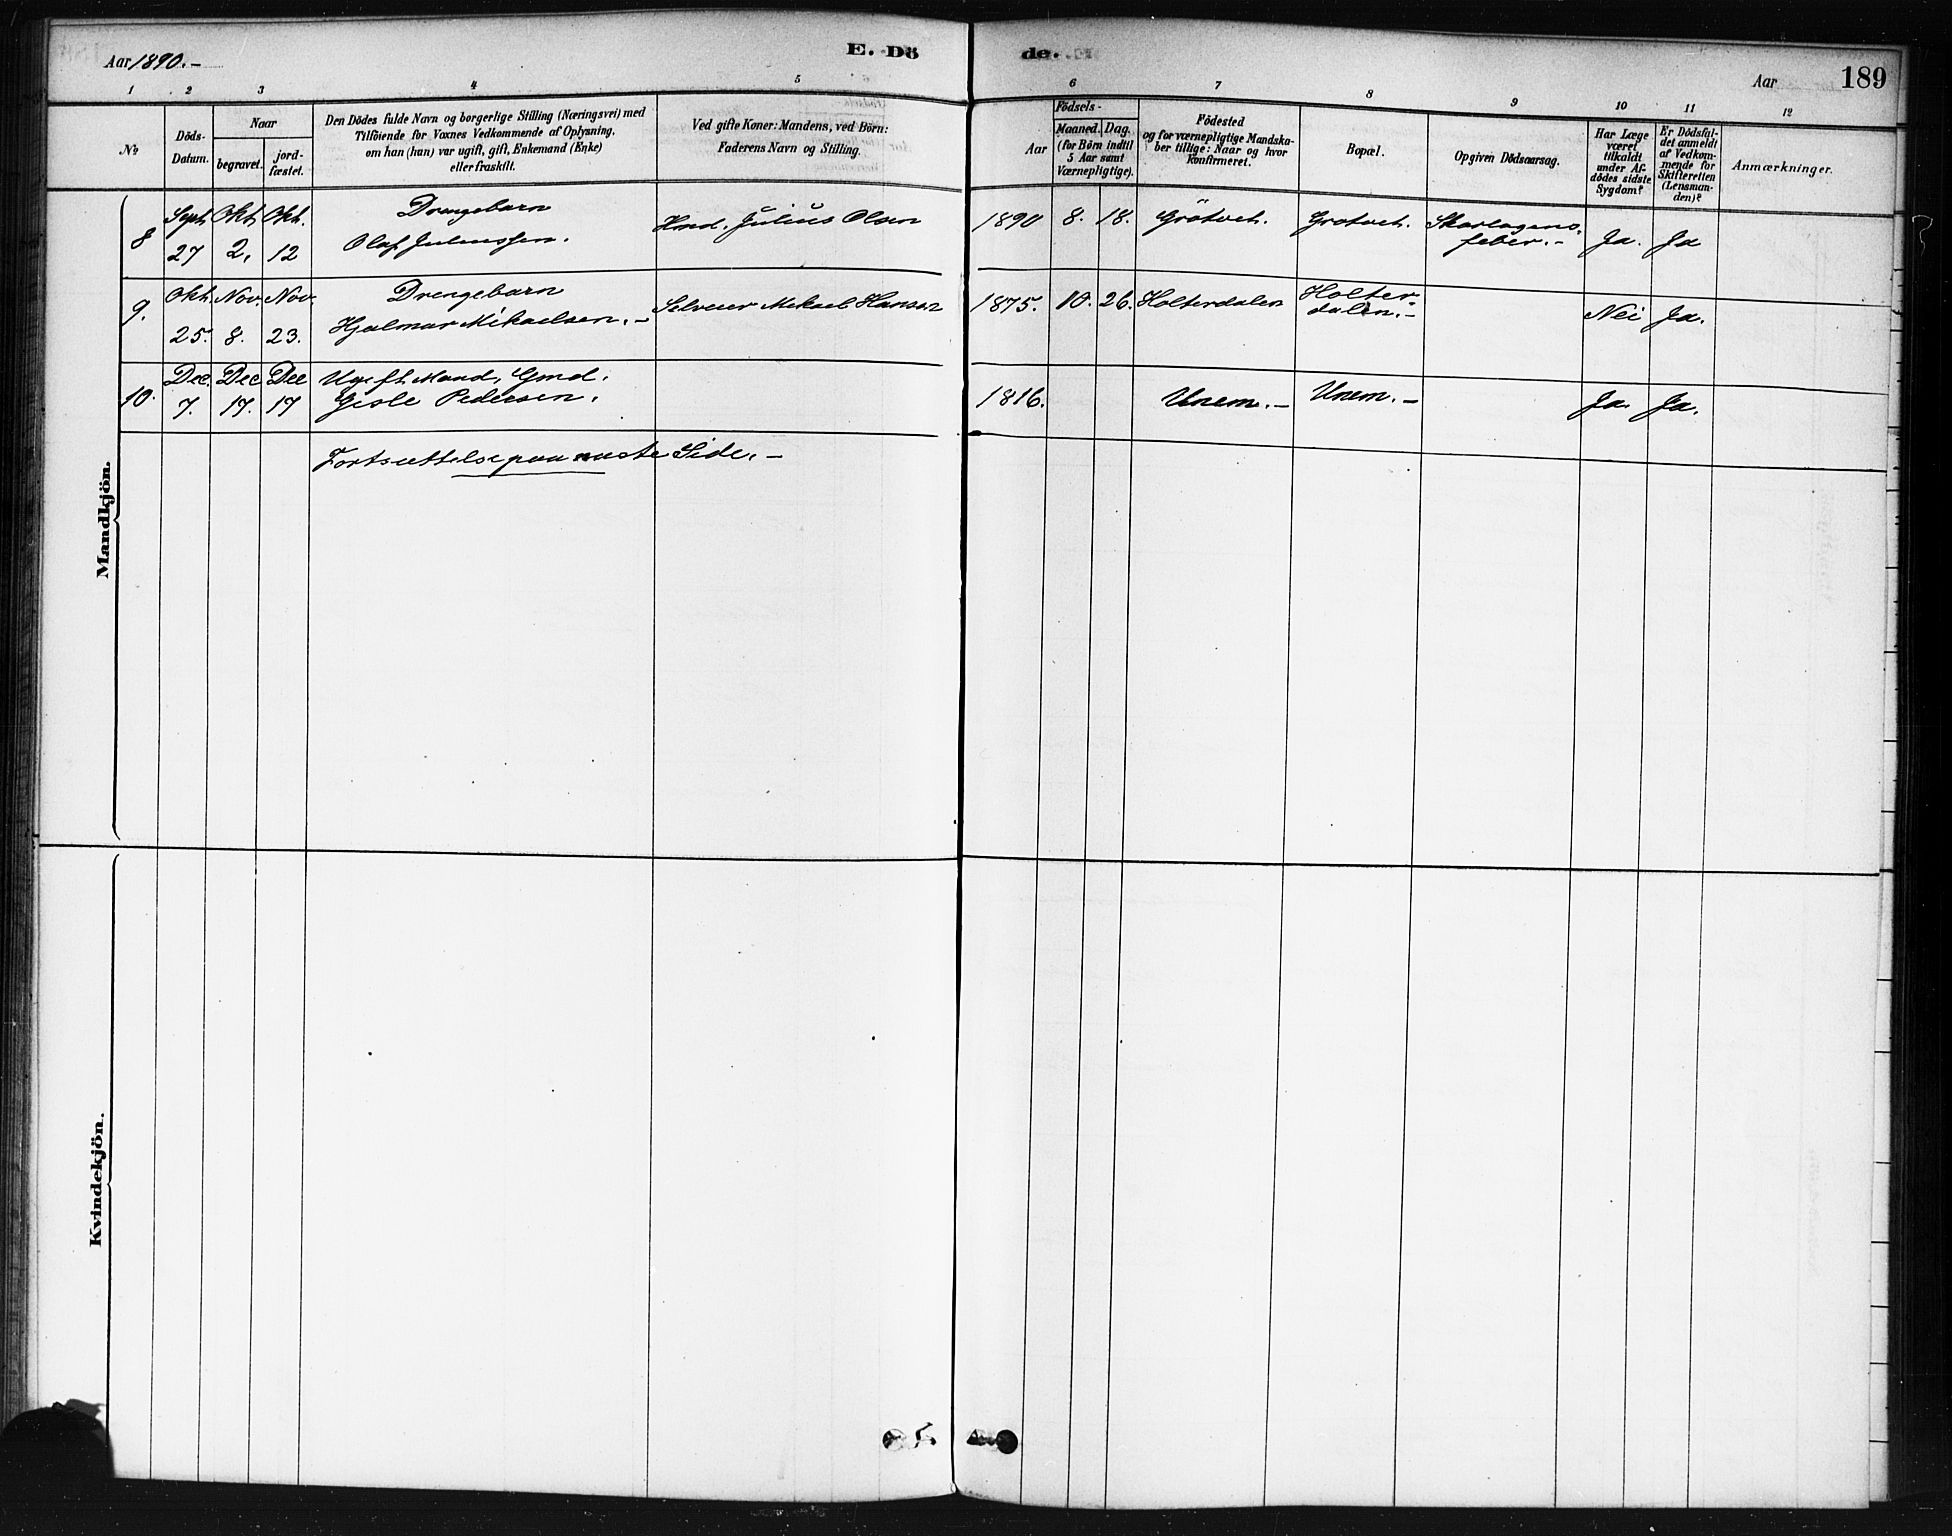 Aar 1890.-
E. Dö
de.
Aar
189
1 2 3 4 5 6 7 8 9 10 11 12
No
Döds-
Datum.
Naar
begravet.
jord-
fæstet.
Den Dödes fulde Navn og borgerlige Stilling (Næringsvei) med
Tilföiende for Voxnes Vedkommende af Oplysning,
om han (hun) var ugift, gift, Enkemand (Enke)
eller fraskilt.
Ved gifte Koner: Mandens, ved Börn:
Faderens Navn og Stilling.
Aar
Födsels-
Maaned. Dag.
(for Börn indtil
5 Aar samt
Værnepligtige).
Födested
og for værnepligtige Mandska-
ber tillige: Naar og hvor
konfirmeret.
Bopæl.
Opgiven Dödsaarsag.
Har Læge
været
tilkaldt
under Af-
dödes sidste
Sygdom?
Er Dödsfal-
det anmeldt
af Vedkom-
mende for
Skifteretten
(Lensman-
den)?
Anmærkninger.
Mandkjön.
8 Sept. 27 Okt. 2. Okt. 12
Drengebarn
Olaf Juliussen.
Hmd. Julius Olsen
1890 8. 18. Grötvet. Grotvet. Skarlagens-
feber.- Ja. Ja
9. Okt. 25. Nov. 8. Nov. 23.
Drengebarn
Hjalmar Mikaelsen.-
Selveier Mikael Hansen
1875. 10. 26. Holterdalen Holter-
dalen.- Nei Ja.
10. Dec. 7. Dec 17. Dec 17
Ugift Mand, Gmd.
Gisle Pedersen.
1816. Unem.- Unem.- Ja. Ja.
Fortsættelse paa næste Side.-
Kvindekjön.